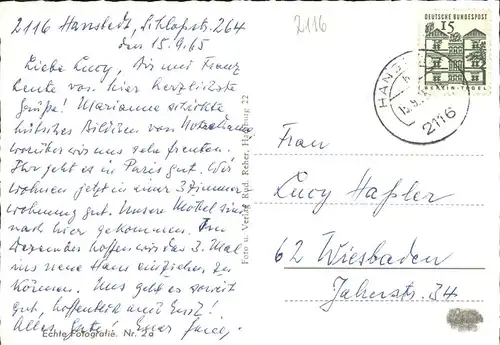 2116 Hanstedt, Schloßstr. 264
den 15.9.65
Liebe Lucy, Dir und Franz
heute von hier herzlichste
Grüße! Marianne schickte
hübsches Bildchen von
worüber wir uns sehr freuten.
Ihr geht es in Paris gut. Wir
wohnen jetzt in einer 3 Zimmer-
wohnung gut. Unsere Möbel sind
nach hier gekommen. Im
Dezember hoffen wir das 3. Mal
ins neue Haus einziehen zu
können. Uns geht es soweit
gut, hoffentlich auch Euch!
Alles Gute! Euer
Echte Fotografie. Nr. 2a
Foto u. Verlag Rud. Reher, Hamburg 22
2116
DEUTSCHE BUNDESPOST
15
BERLIN-TEGEL
2116
Frau
Lucy Haßler
62 Wiesbaden
Jahnstr. 34